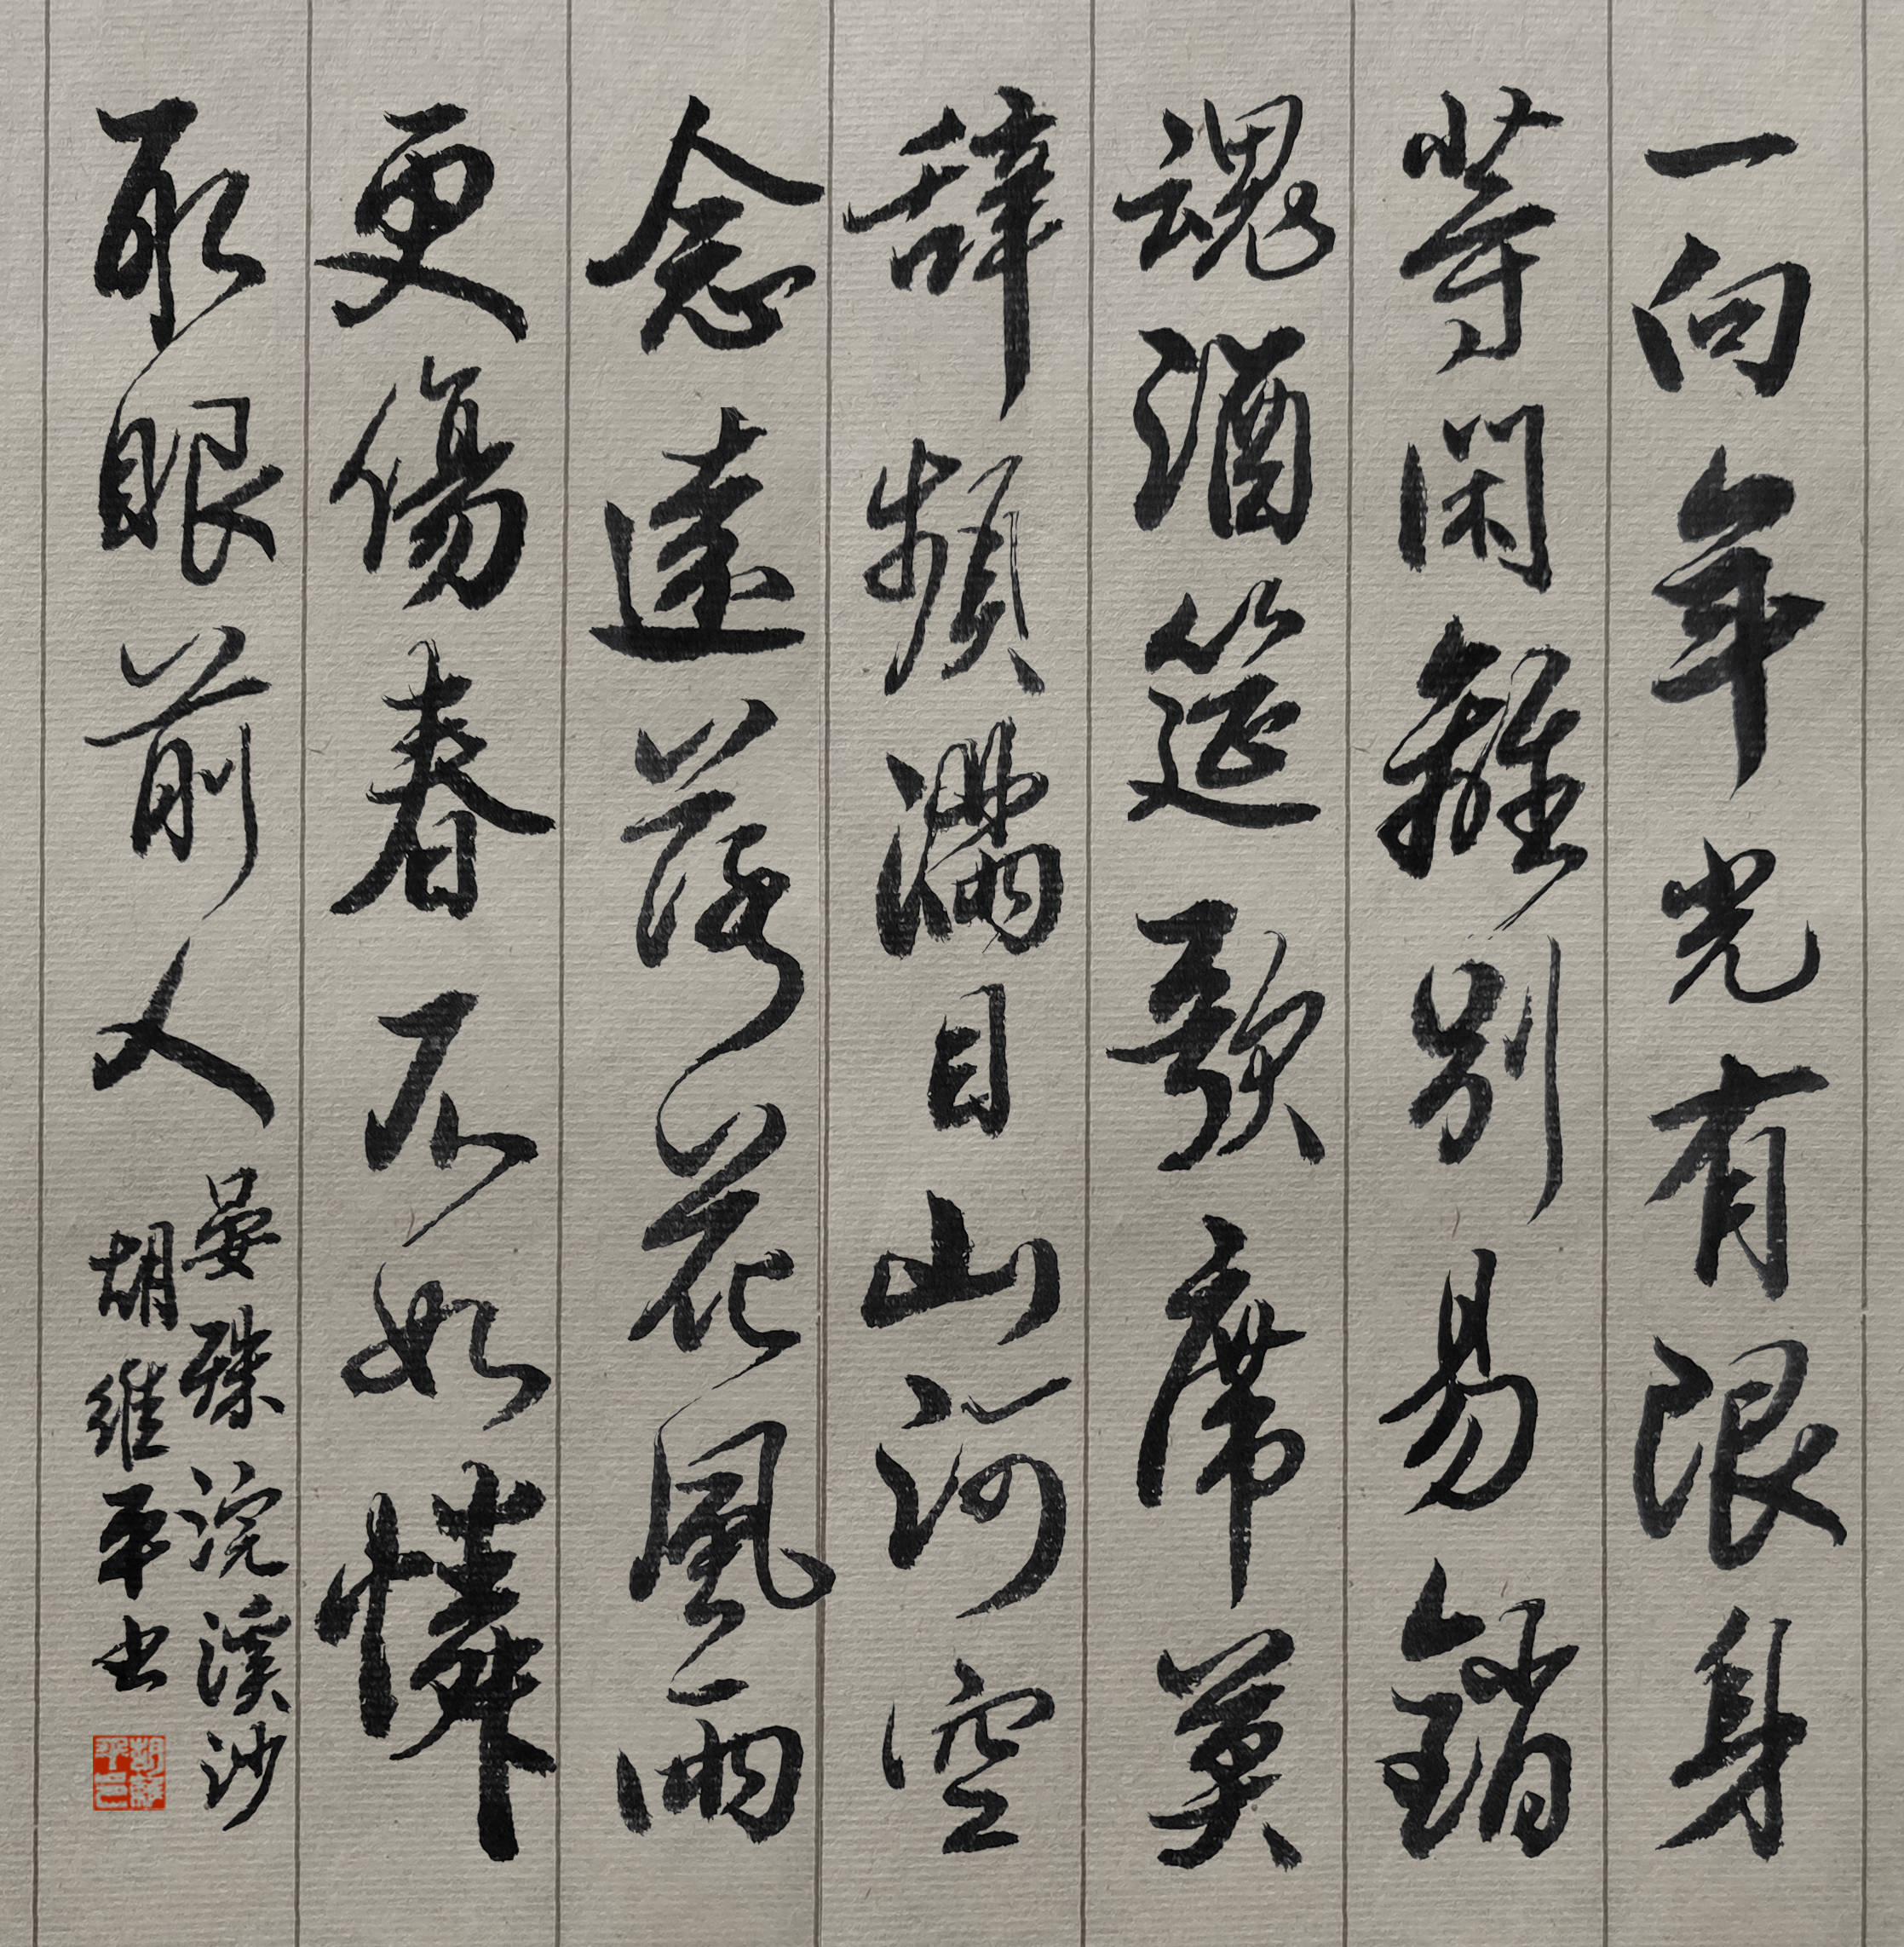 一向年光有限身
等閑離別易銷
魂酒筵歌席莫
辞頻滿目山河空
念遠落花風雨
更傷春不如憐
取眼前人
晏殊浣溪沙
胡維平書